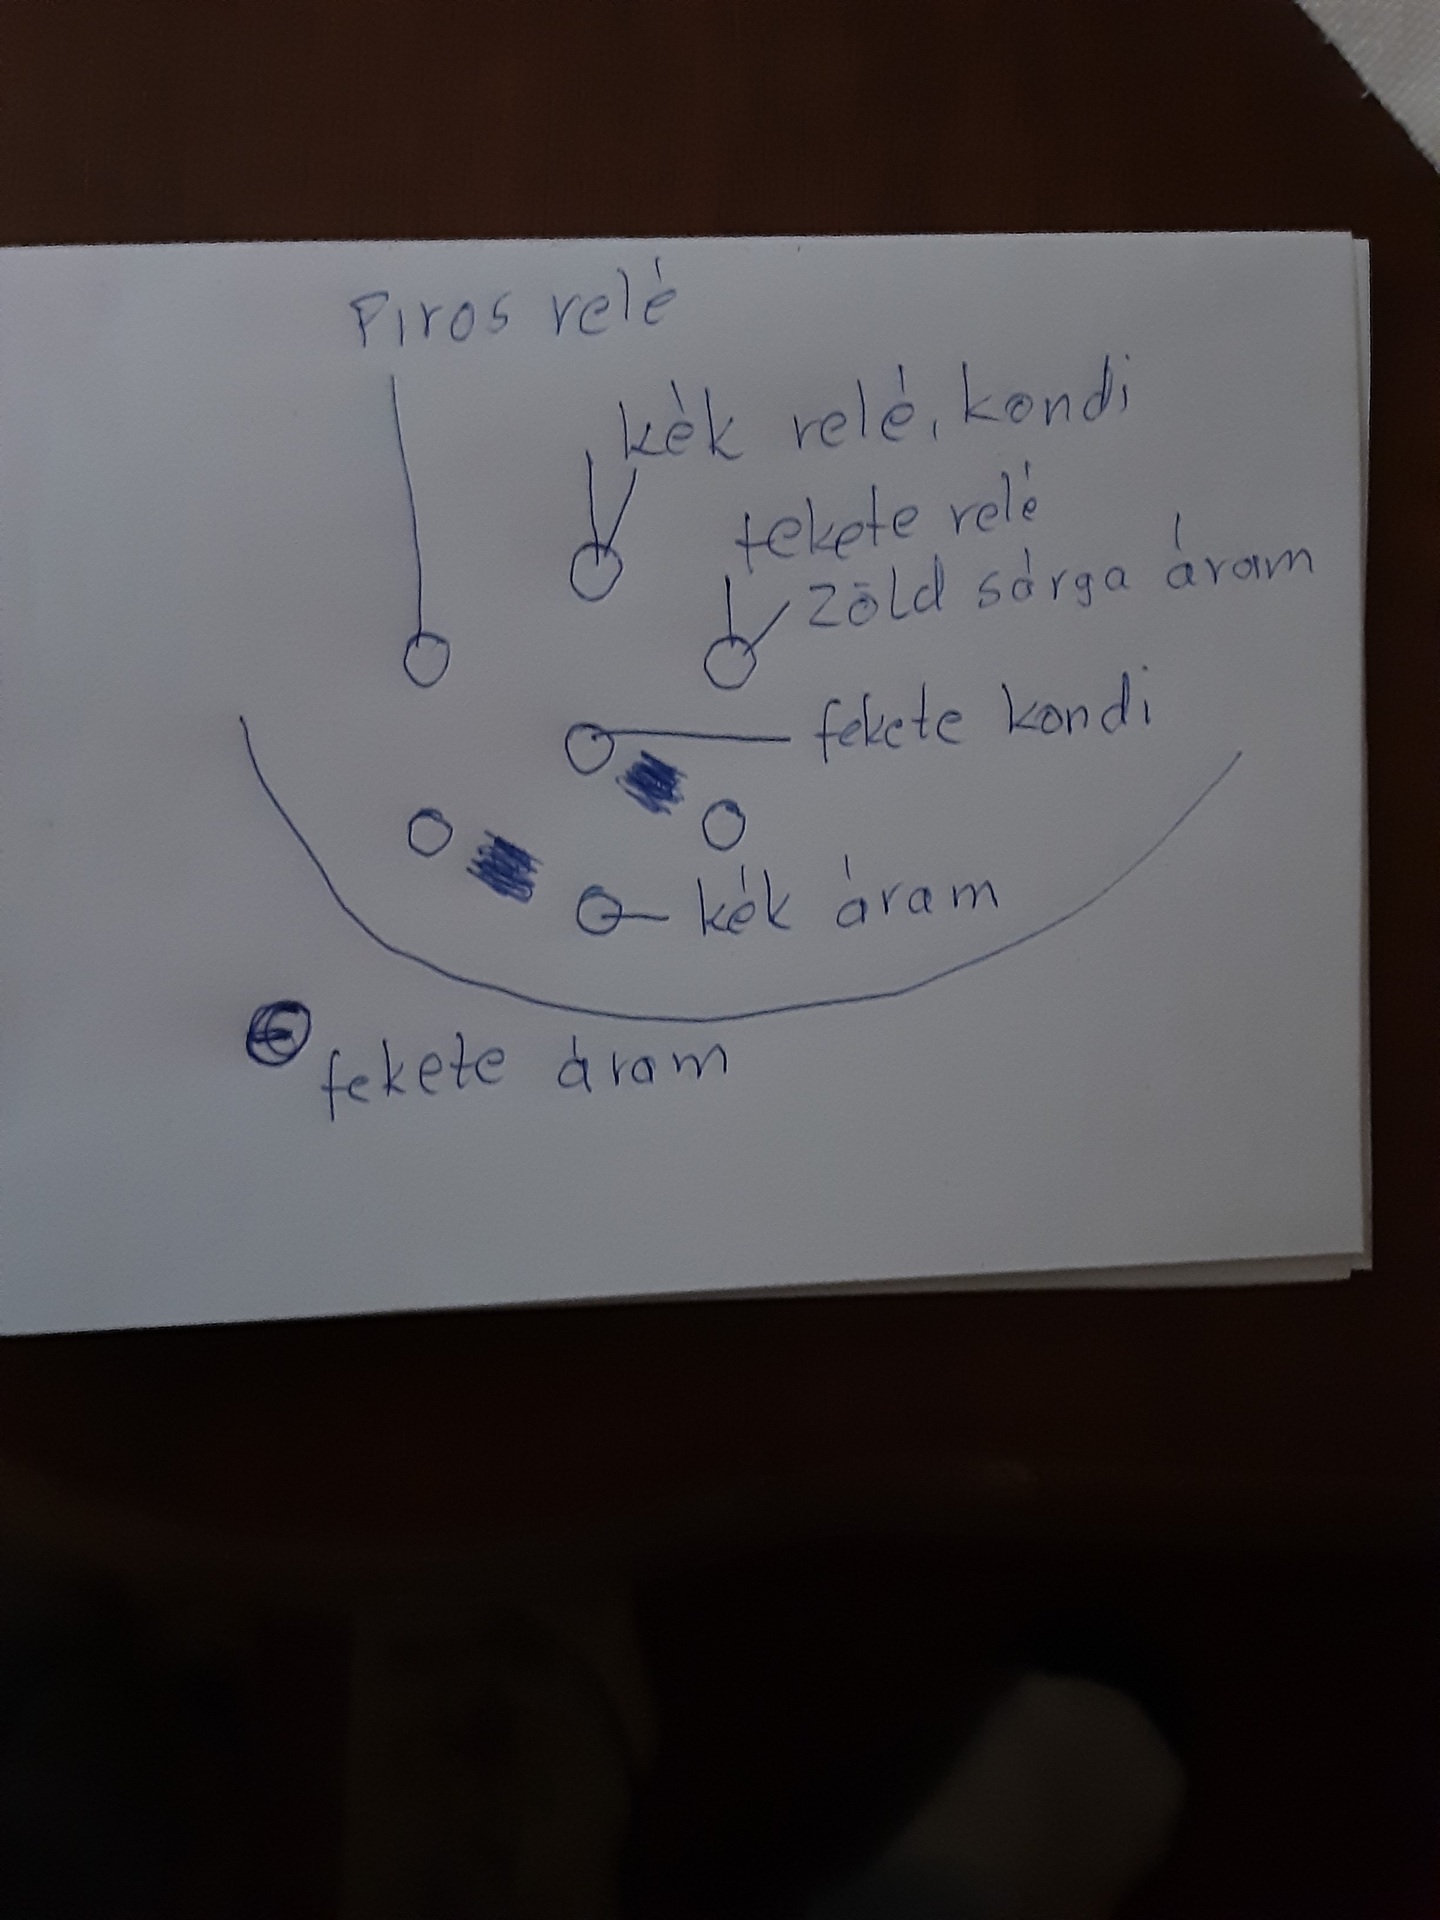 Piros relé
kék relé, kondi
fekete relé
zöld sárga áram
fekete kondi
kék áram
fekete áram